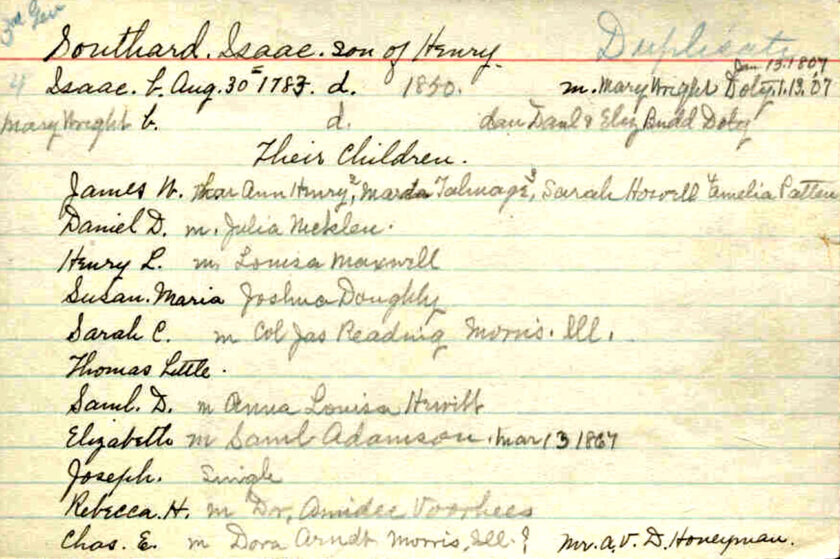 3rd Gen
Southard. Isaac. son of Henry. Duplicate
Jan 13. 1807
4 Isaac. b. Aug. 30th 1783. d. 1850. m. Mary Wright Doty. 1.13.07
Mary Wright b. d. dau Danl & Eliz Budd Doty
Their Children.
James W. Mar Ann Henry, 2 Talmage, 3 Sarah Howell 4 Amelia Patten
Daniel D. m. Julia Nicklen.
Henry L. m. Louisa Maxwell
Susan. Maria Joshua Doughty
Sarah C. m Col Jas Reading Morris. Ill.
Thomas Little.
Saml. D. m Anna Louisa Hewitt
Elizabeth m Saml Adamson. Mar 13 1867
Joseph. Single
Rebecca. H. m Dr. Amidee Voorhees
Chas. E. m Dora Arndt Morris, Ill. ? Mr. A. V. D. Honeyman.